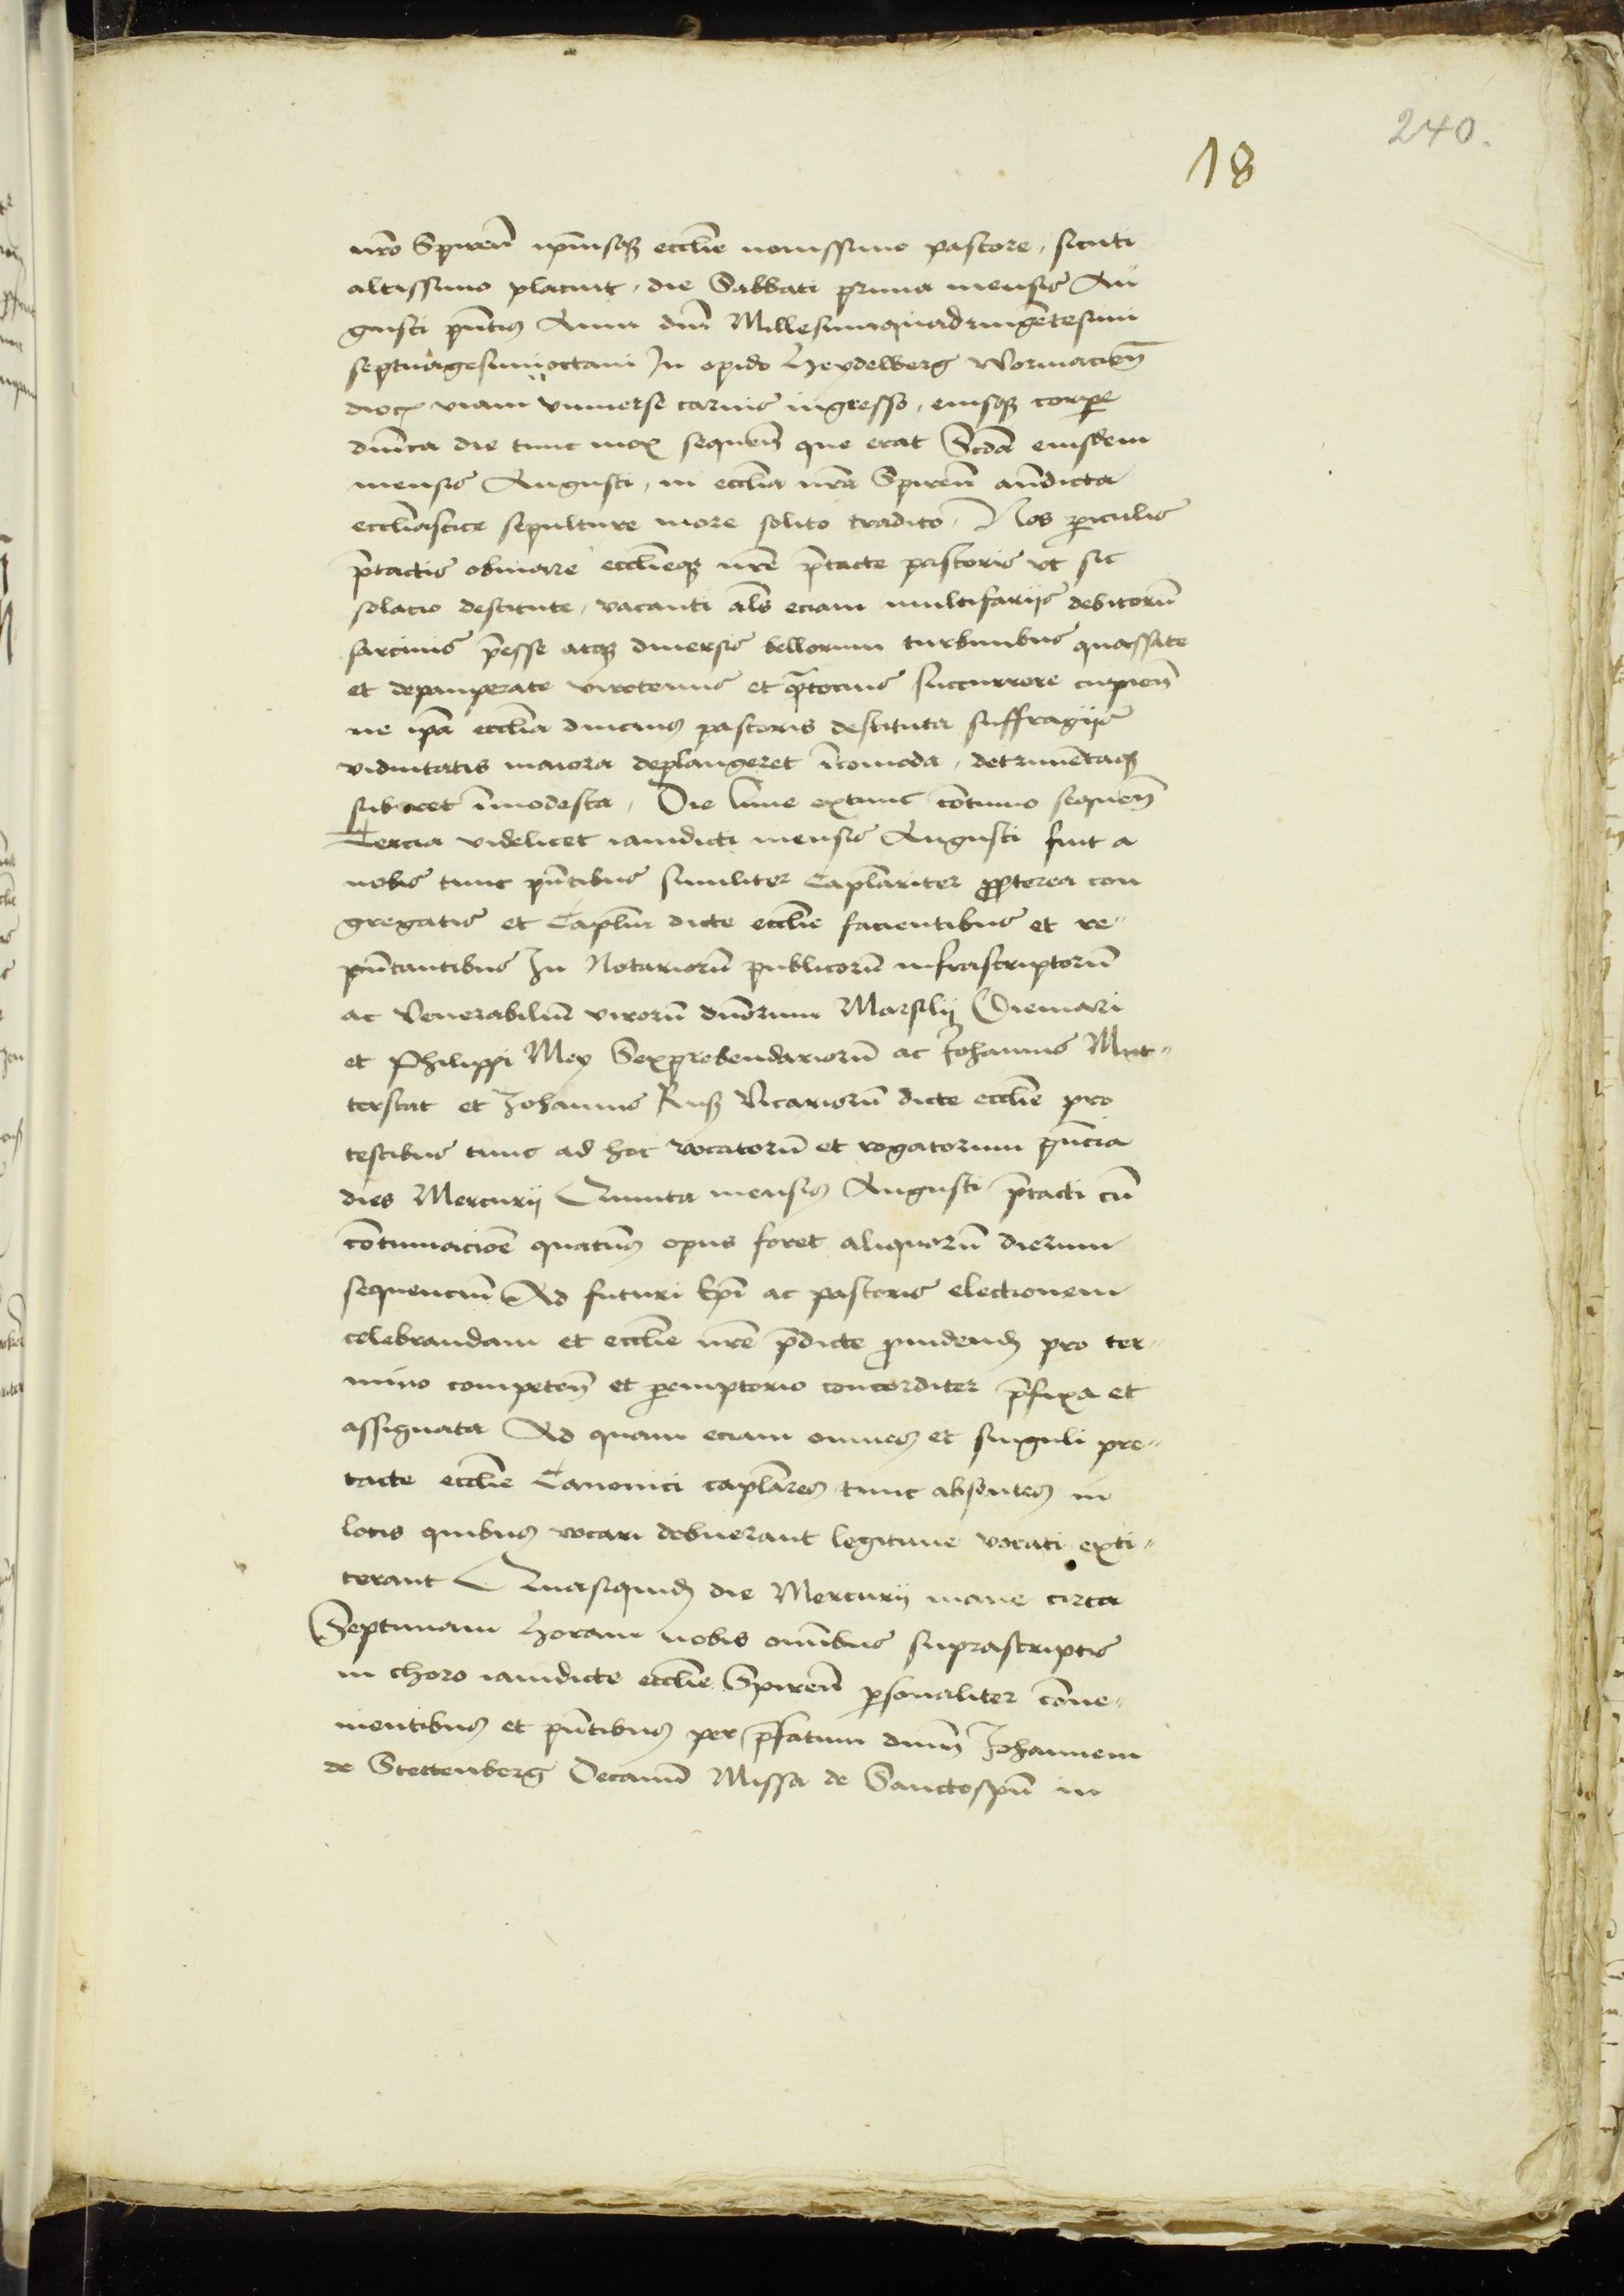 240.
18
nr̄o Spireñ ip̄iusq̨ eccl̄ie nouissimo pastore, sicuti
altissimo placuit, die Sabbati prima mensis Au
gusti p̄ntis Anni dn̄i Millesimiquadringētesimi
septuagesimioctaui In opido Heydelberg Wormacieñ
dioc̄ viam vniuerse carnis ingresso, eiusq̨ corp̄e
dn̄ica die tunc mox sequeñ que erat Scd̄a eiusdem
mensis Augusti, in eccl̄ia nr̄a Spireñ an̄dicta
eccl̄iastice sepulture more solito tradito, Nos p̄iculis
p̄tactis obuiare eccl̄ieq̨ nr̄e p̄tacte pastoris vt sic
solacio destitute, vacanti al̄s eciam multifarijs debitorū
sarcinis p̄esse atq̨ diuersis bellorum turbinibus quassate
et depauperate virotenus et q̄tocius succurrere cupieñ
ne ip̄a eccl̄ia diucius pastoris destituta suffragijs
viduitatis maiora deplangeret īcomoda, detrimētaq̨
subiret īmodesta, Die lune extunc cōtinuo sequeñ
Tercia videlicet iamdicti mensis Augusti fuit a
nobis tunc p̄ntibus similiter Capl̄ariter p̄pterea con
gregatis et Capl̄m dicte eccl̄ie facientibus et re-
p̄ntantibus In Notariorū publicorū infrascriptorū
ac Venerabiliū virorū dn̄orum Marsilij Diemari
et Philippi Mey Sexprebendariorū ac Johannis Mut-
terstat et Johannis Ruß Vicariorū dicte eccl̄ie pro
testibus tunc ad hoc vocatorū et rogatorum p̄ncia
dies Mercurij Quinta mensis Augusti p̄tacti cū
cōtinuacioē quaten̄ opus foret aliquorū dierum
sequenciū Ad futuri Ep̄i ac pastoris electionem
celebrandam et eccl̄ie nr̄e p̄dicte p̄uidend̄ pro ter-
mino competeñ et p̄emptorio concorditer p̄fixa et
assignata Ad quam eciam omnes et singuli pre-
tacte eccl̄ie Canonici capl̄ares tunc absentes in
locis quibus vocari debuerant legitime vocati exti-
terant Quasiquid̄ die Mercurij mane circa
Septimam horam nobis om̄ibus suprascriptis
in choro iamdicte eccl̄ie Spireñ p̄sonaliter cōue-
nientibus et p̄ntibus per p̄fatum dn̄m Johannem
de Stettenberg Decanū Missa de Sanctosp̄u in